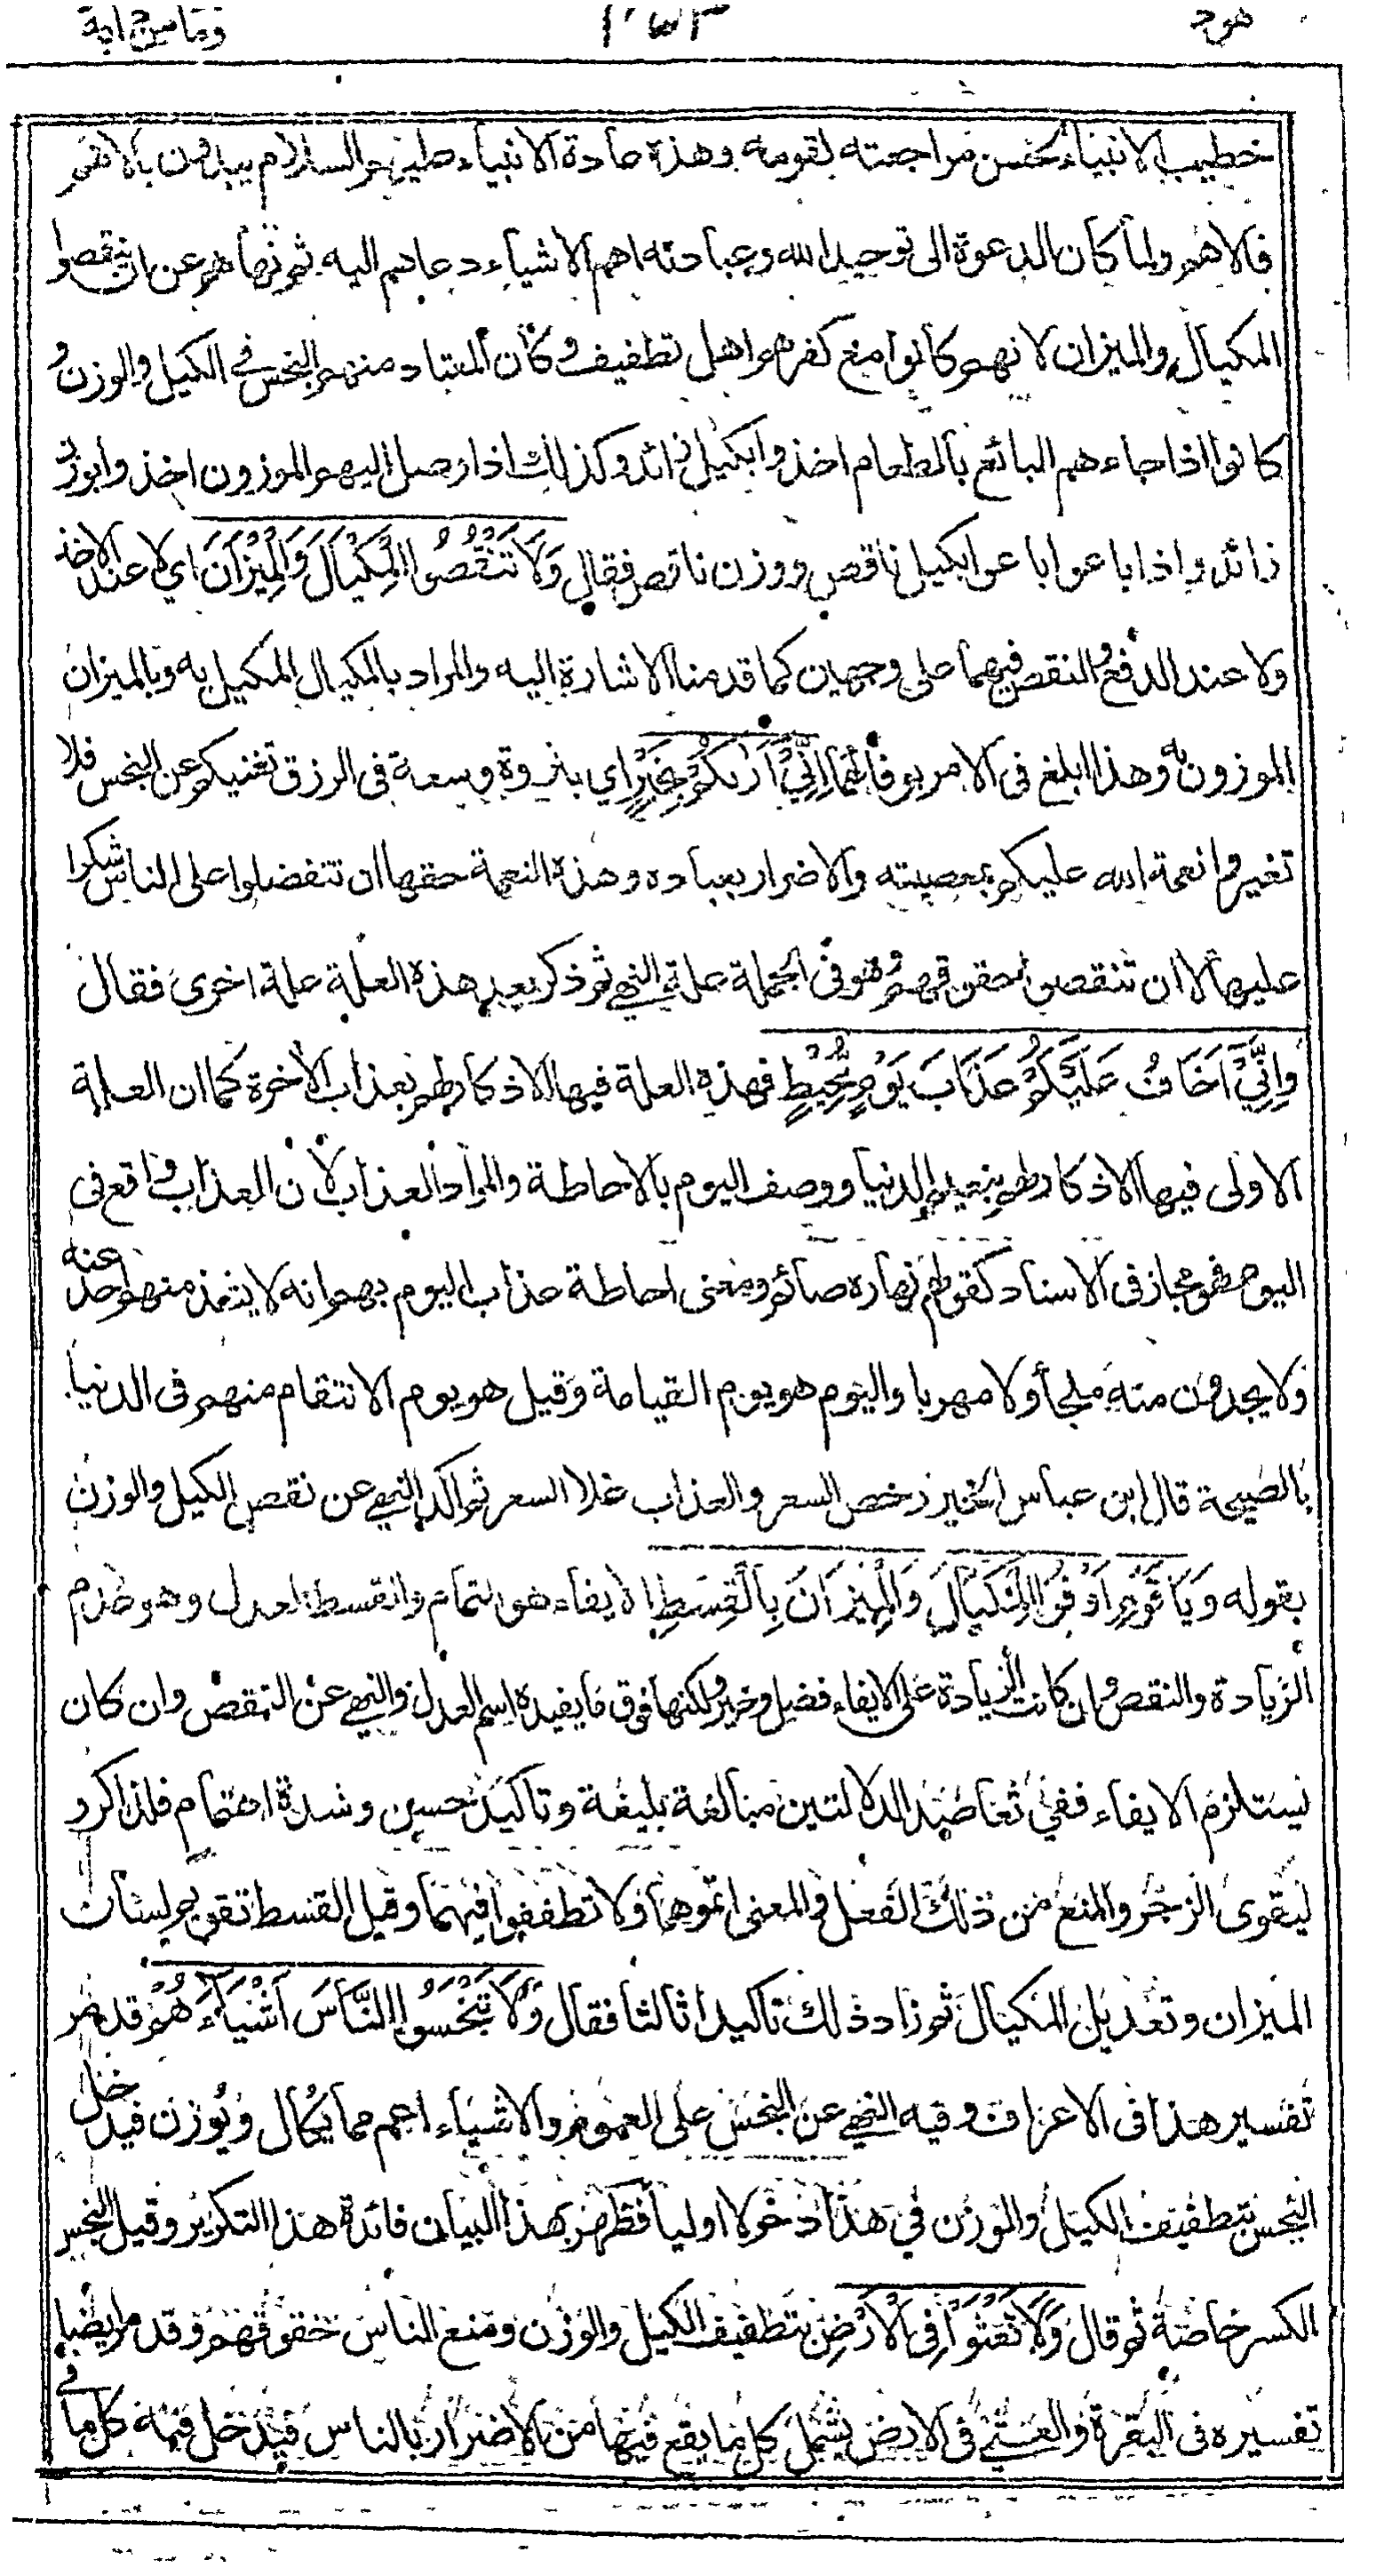 هود ١٠٥٣ وما من دابة
خطيب الانبياء لحسن مراجعته لقومه وهذه عادة الانبياء عليهم السلام يبدون بالاهم
فالاهم ولما كان الدعوة الى توحيد الله وعبادته اهم الاشياء دعاهم اليه ثم نهاهم عن ان ينقصوا
المكيال والميزان لانهم كانوا مع كفرهم اهل تطفيف وكان المعتاد منهم البخس في الكيل والوزن و
كانوا اذا جاءهم البائع بالطعام اخذوا بكيل زائد وكذلك اذا وصل اليهم الموزون اخذوا بوزن
زائد واذا باعوا باعوا بكيل ناقص ووزن ناقص فقال وَلَا تَنْقُصُوا الْمِكْيَالَ وَالْمِيْزَانَ اي لا عند الاخذ
ولا عند الدفع والنقص فيهما على وجهين كما قدمنا الاشارة اليه والمراد بالمكيال المكيل به وبالميزان
الموزون به وهذا ابلغ فى الامر بوفائهما اِنِّيْ اَرٰىكُمْ بِخَيْرٍ اي بثروة وسعة فى الرزق تغنيكم عن البخس فلا
تغيروا نعمة الله عليكم بمعصيته والاضرار بعباده وهذه النعمة حقها ان تتفضلوا على الناس شكرا
عليها لا ان تنقصوا حقوقهم وهو فى الجملة علة النهي ثم ذكر بعد هذه العلة علة اخرى فقال
وَاِنِّيْ اَخَافُ عَلَيْكُمْ عَذَابَ يَوْمٍ مُّحِيْطٍ فهذه العلة فيها الاذكار لهم بعذاب الآخرة كما ان العلة
الاولى فيها الاذكار لهم بنعيم الدنيا ووصف اليوم بالاحاطة والمراد العذاب لان العذاب واقع فى
اليوم فهو مجاز فى الاسناد كقولهم نهاره صائم ومعنى احاطة عذاب اليوم بهم انه لا يشذ منهم احد عنه
ولا يجدون منه ملجأ ولا مهربا واليوم هو يوم القيامة وقيل هو يوم الانتقام منهم فى الدنيا
بالصيحة قال ابن عباس الخير رخص السعر والعذاب غلا السعر ثم اكد النهي عن نقص الكيل والوزن
بقوله وَيَا قَوْمِ اَوْفُوا الْمِكْيَالَ وَالْمِيْزَانَ بِالْقِسْطِ الايفاء هو التمام والقسط العدل وهو عدم
الزيادة والنقص وان كانت الزيادة على الايفاء فضل وخير ولكنها فوق ما يفيده اسم العدل والنهي عن النقص وان كان
يستلزم الايفاء ففي تعاضد الدلالتين مبالغة بليغة وتاكيد حسن وشدة اهتمام فلذا كرر
ليقوى الزجر والمنع من ذلك الفعل والمعنى اتموهما ولا تطففوا فيهما وقيل القسط تقويم لسان
الميزان وتعديل المكيال ثم زاد ذلك تاكيدا ثالثا فقال وَلَا تَبْخَسُوا النَّاسَ اَشْيَاءَهُمْ قد مر
تفسير هذا فى الاعراف وفيه النهي عن البخس على العموم والاشياء اعم مما يكال ويوزن فيدخل
البخس بتطفيف الكيل والوزن في هذا دخولا اوليا فظهر بهذا البيان فائدة هذا التكرير وقيل البخس
الكسر خاصة ثم قال وَلَا تَعْثَوْا فِى الْاَرْضِ بتطفيف الكيل والوزن ومنع الناس حقوقهم وقد مر ايضا
تفسيره فى البقرة والعثي فى الارض يشمل كل ما يقع فيها من الاضرار بالناس فيدخل فيه كل ما في